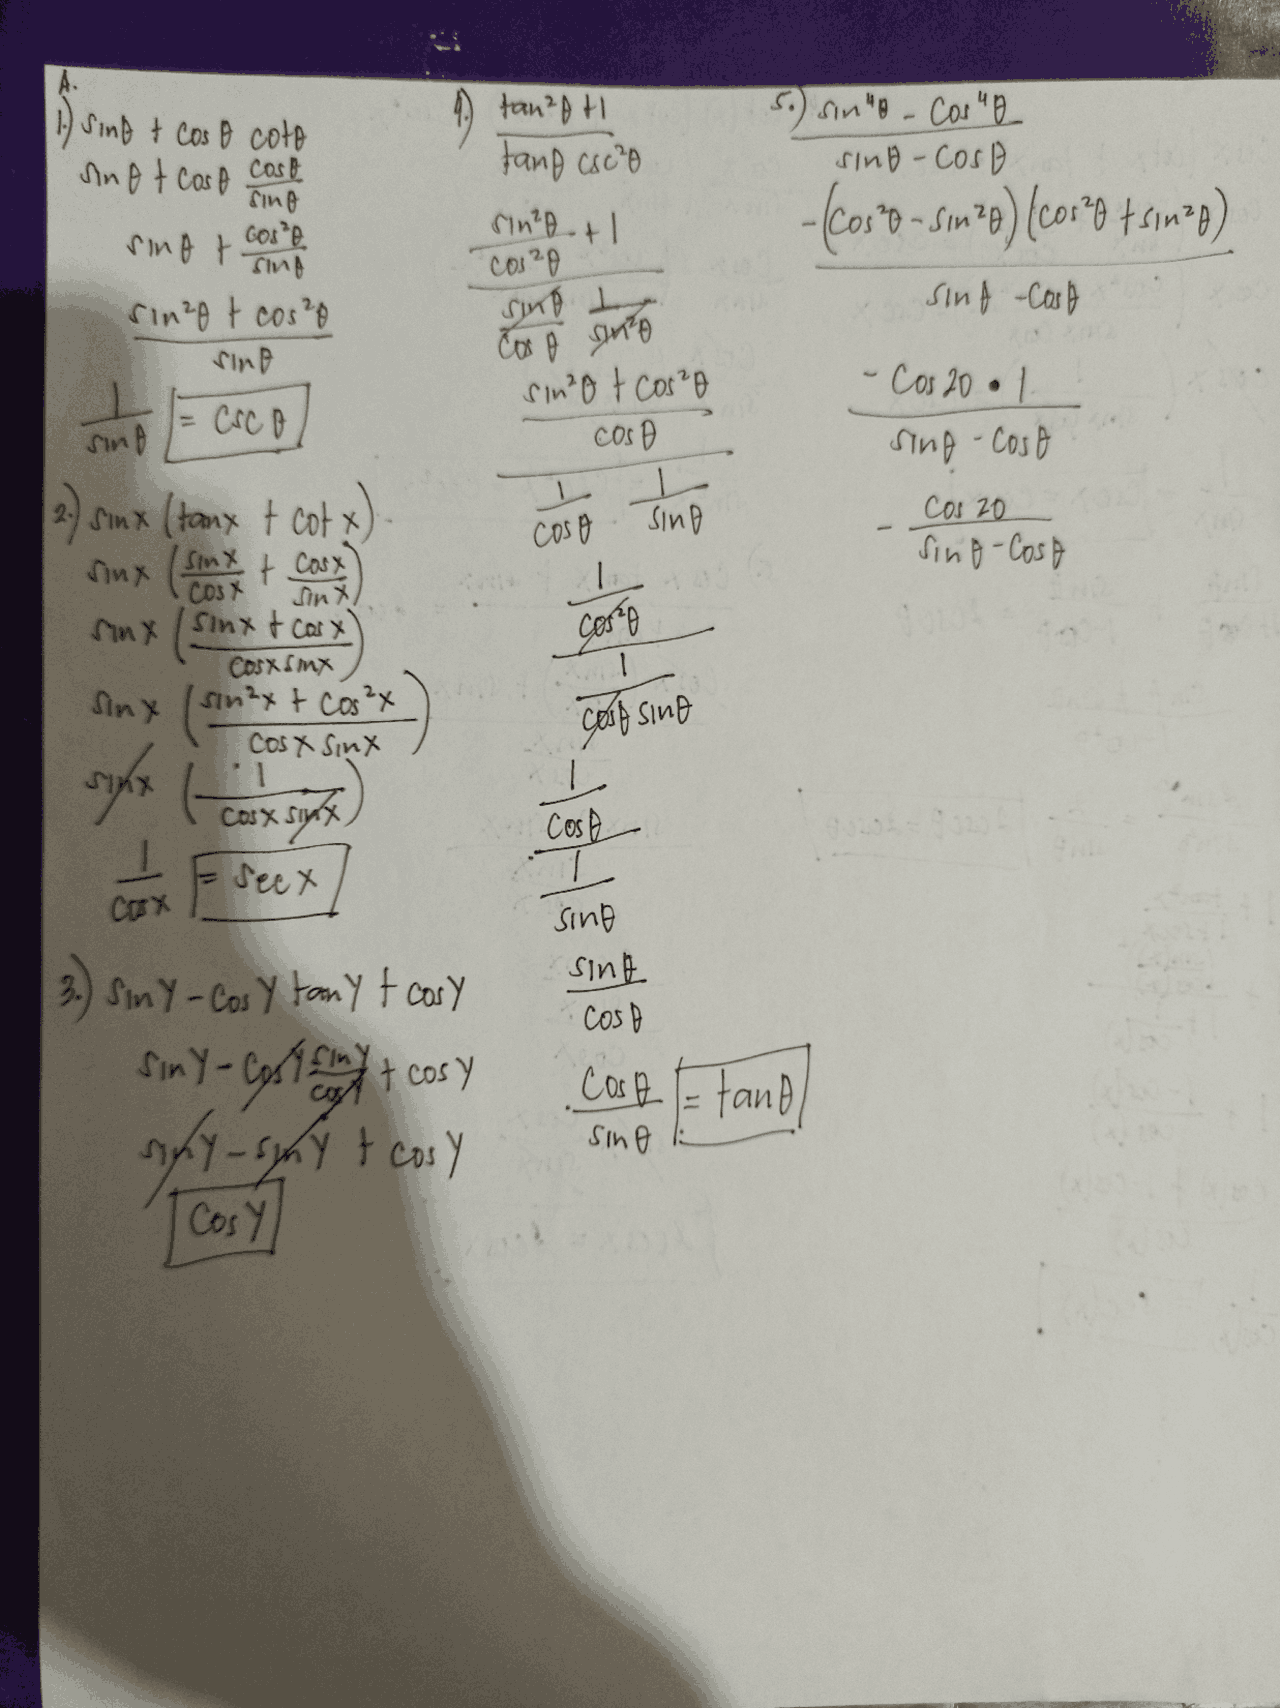 A.
1.) sinθ + cosθ cotθ
sinθ + cosθ cosθ/sinθ
sinθ + cos²θ/sinθ
sin²θ + cos²θ
sinθ
1/sinθ = cscθ
2.) sinx (tanx + cotx)
sinx (sinx/cosx + cosx/sinx)
sinx (sinx + cosx / cosxsinx)
sinx (sin²x + cos²x / cosx sinx)
sinx (1 / cosx sinx)
1/cosx = secx
3.) sinY - cosY tanY + cosY
sinY - cosY sinY/cosY + cosY
sinY - sinY + cosY
cosY
4.) tan²θ + 1
tanθ csc²θ
sin²θ/cos²θ + 1
sinθ/cosθ 1/sin²θ
sin²θ + cos²θ
cosθ
1/cosθ 1/sinθ
1
cos²θ
1
cosθ sinθ
1
cosθ
1
sinθ
sinθ
cosθ
cosθ/sinθ = tanθ
5.) sin⁴θ - cos⁴θ
sinθ - cosθ
-(cos²θ - sin²θ)(cos²θ + sin²θ)
sinθ - cosθ
- cos2θ • 1
sinθ - cosθ
- cos2θ
sinθ - cosθ